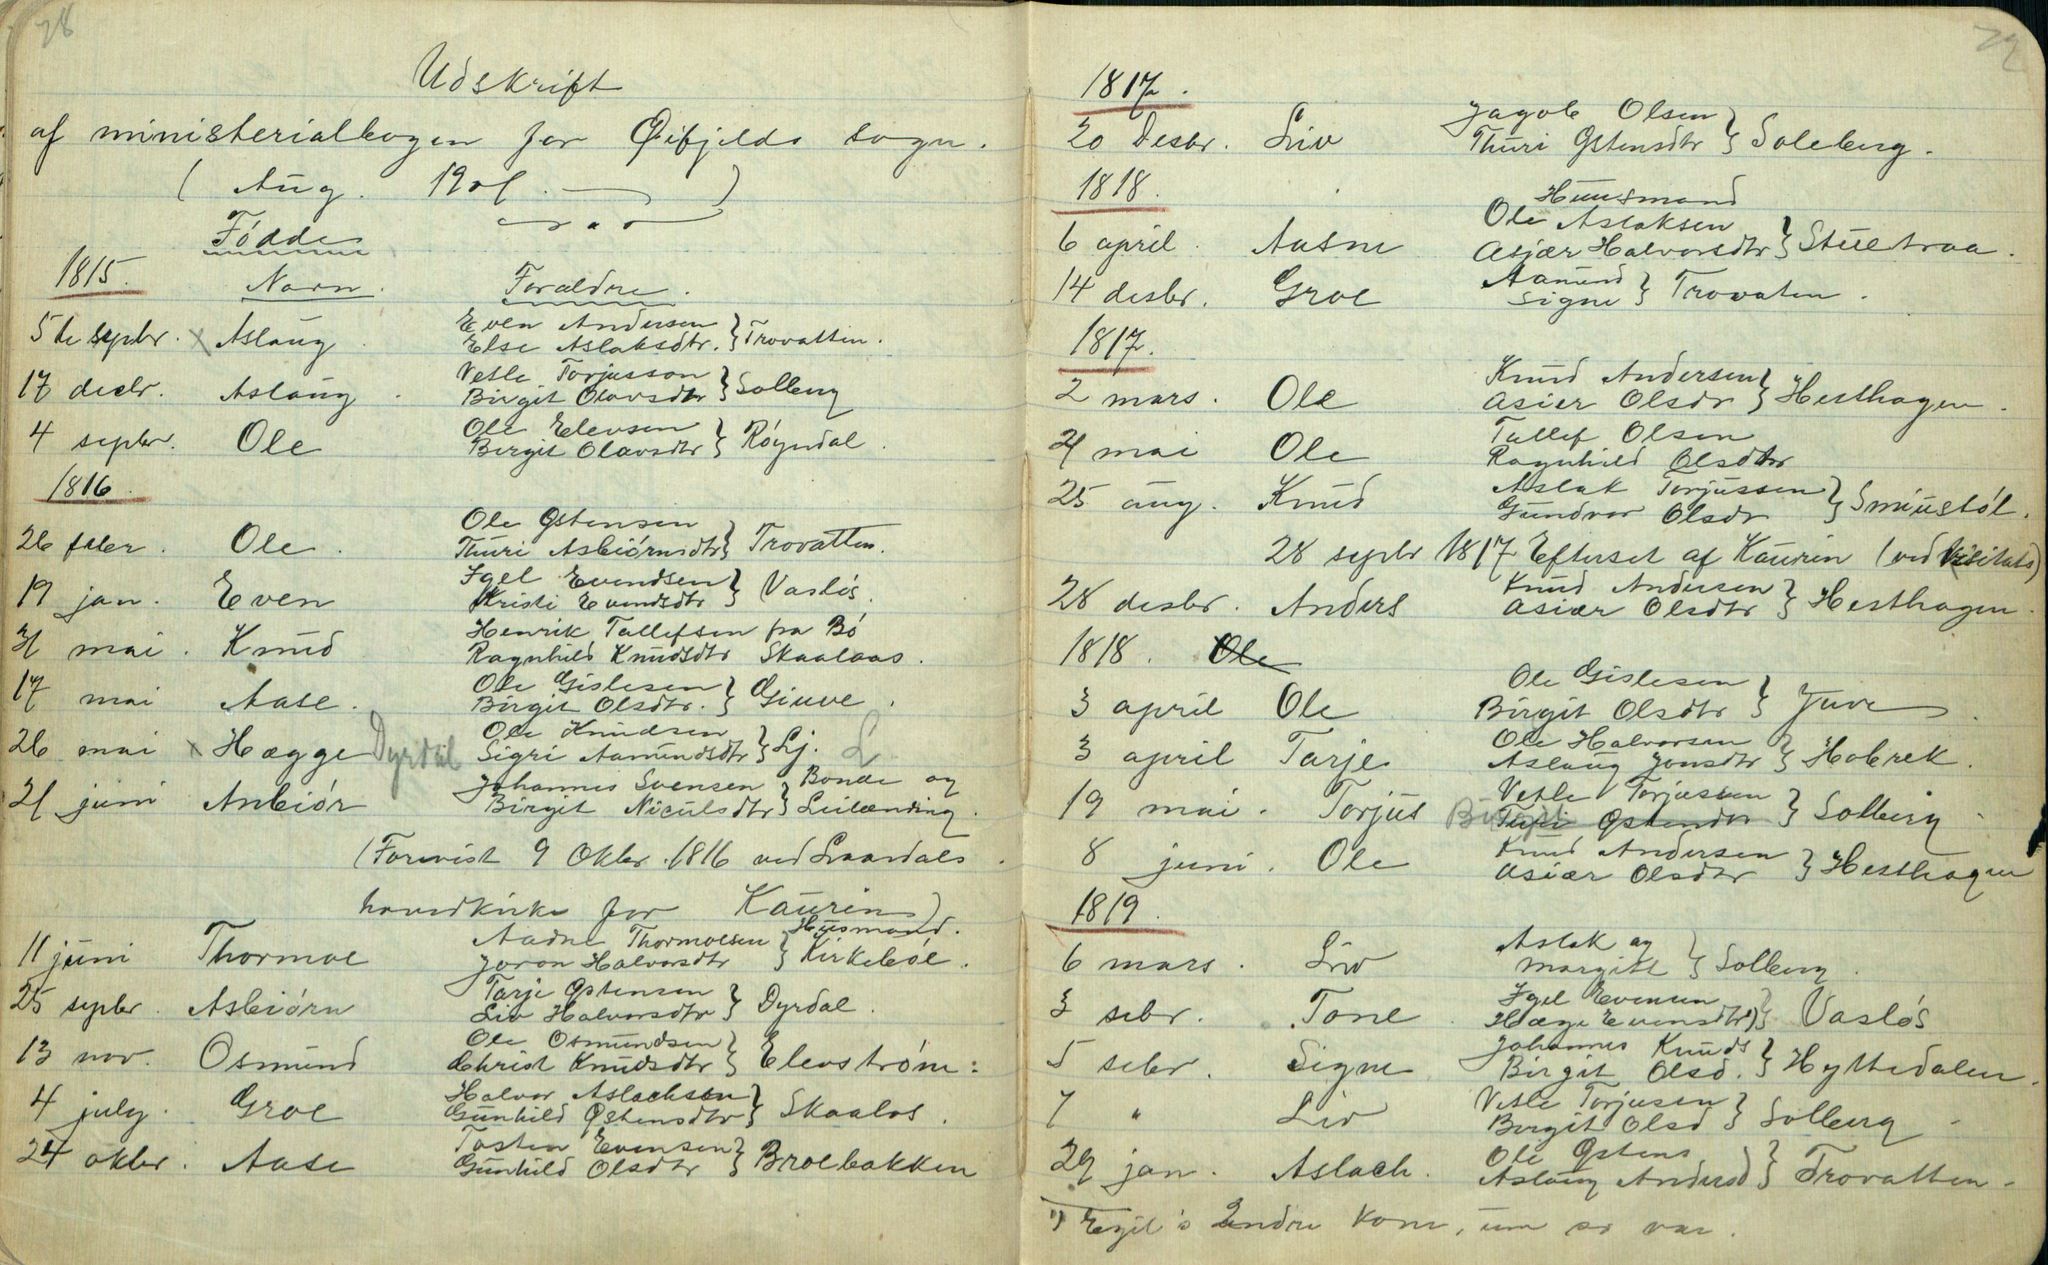 78
Udskrift
af ministerialbogen for Øifjelds sogn.
(Aug. 1901. —)
Fødde
1815. Navn. Forældre.
5te sepbr. x Aslaug Even Andersen
Else Aslaksdtr. } Trovatten.
17 decbr. Aslaug Vetle Torjusson
Birgit Olavsdtr } Solberg
4 sepbr. Ole Ole Elevsen
Birgit Olavsdtr } Røyndal.
1816.
26 feber. Ole. Ole Østensen
Thuri Asbiørnsdtr } Trovatten.
19 jan. Even Igel Evendsen
Kristi Evendsdtr } Vasløs.
31 mai. Knud Henrik Tallefsen fra Bø
Ragnhild Knudsdtr Skaalaas.
17 mai Aase. Ole Gislesen
Birgit Olsdtr. } Giuve.
26 mai x Hægge Dyrdal Ole Knudsen
Sigri Aamundsdtr } Lj. L
21 juni Anbiør Johannes Svensen
Birgit Niculsdtr } Bonde og Leilænding.
(Forevist 9 Oktbr. 1816 ved Laardals
hovedkirke for Kaurin).
11 juni Thormoe Aadne Thormoesen
Joron Halvorsdtr } Husmand. Kirkebøe.
25 sepbr. Asbiørn Tarje Østensen
Liv Halvorsdtr } Dyrdal.
13 nov. Osmund Ole Osmundsen
Christ Knudsdtr } Elevstrøm:
4 july. Groe Halvor Aslachsen
Gunhild Østensdtr } Skaalos.
24 oktbr. Aase Tosten Evensen
Gunhild Olsdtr } Broebakken
79
1817.
20 Desbr. Liv Jagob Olsen
Thuri Østensdtr } Soleberg.
1818.
Huusmand
6 april. Aasne Ole Aslaksen
Asjær Halvorsdtr } Stuetraa.
14 desbr. Groe Aamund
Signe } Trovaten.
1817.
2 mars. Ole Knud Andersen
Asier Olsdr } Hesthagen.
21 mai Ole Tallef Olsen
Ragnhild Olsdtr
25 aug. Knud Aslak Torjussen
Gundvor Olsdr } Smiustøl.
28 sepbr 1817 Efterset af Kaurin (ved Visitats)
28 desbr. Anders Knud Andersen
Asiær Olsdtr } Hesthagen.
1818. Ole
3 april Ole Ole Gislesen
Birgit Olsdtr } Juve.
3 april Tarje Ole Halvorsen
Aslaug Jonsdtr } Hobrek.
19 mai. Torjus Vetle Torjussen
Birgit Turi Østensdtr } Solberg
8 juni. Ole Knud Andersen
Asiær Olsdtr } Hesthagen
1819.
6 mars. Liv Aslak og
Margitt } Solberg.
3 sebr. Tone Igel Evensen
Hæge Evensdtr 1) } Vasløs
5 sebr. Signe Johannes Knuds
Birgit Olsd. } Hyttedalen.
7 " Liv Vetle Torjusen
Birgit Olsd } Solberg
29 jan. Aslach. Ole Østens
Aslaug Andersd } Trovatten.
1) Egil's andre kone, um so var.